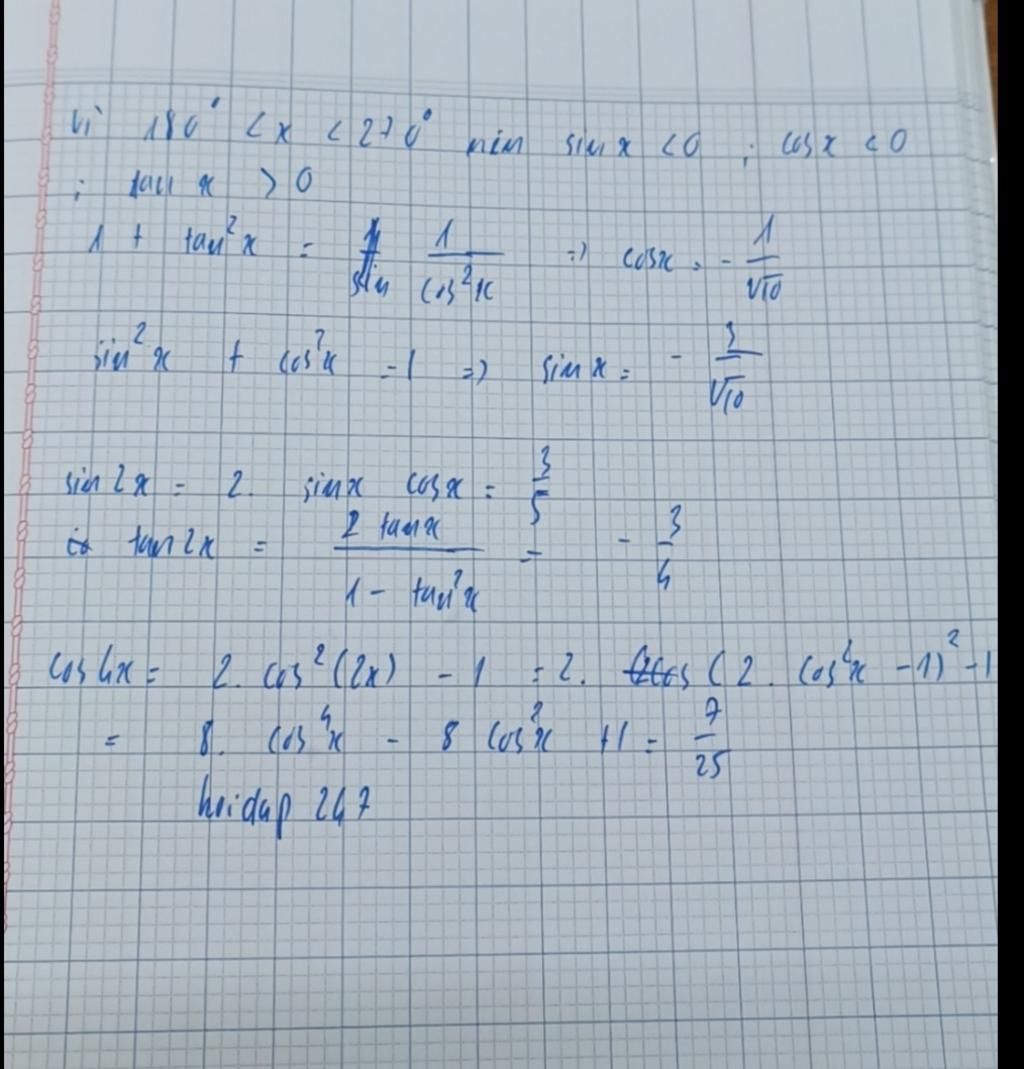 Vì 180° < x < 270° nên sin x < 0 ; cos x < 0
; tan x > 0
1 + tan²x = 1/cos²x => cosx = -1/√10
sin²x + cos²x = 1 => sin x = -3/√10
sin 2x = 2. sinx cosx = 3/5
tan 2x = 2 tanx / (1 - tan²x) = -3/4
cos 4x = 2. cos²(2x) - 1 = 2. (2. cos²x - 1)² - 1
= 8. cos⁴x - 8 cos²x + 1 = 7/25
hoidap 247